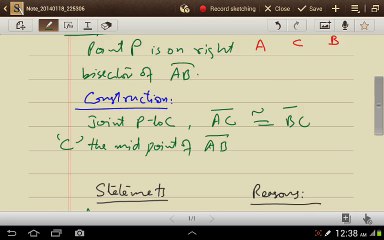 Note_20140118_225306
Record sketching
Save
Cancel
Point P is on right A C B
bisector of AB.
Construction:
Joint P-toC, AC ≅ BC
'C' the mid point of AB
Statemets Reasons:
1/1
12:38 AM